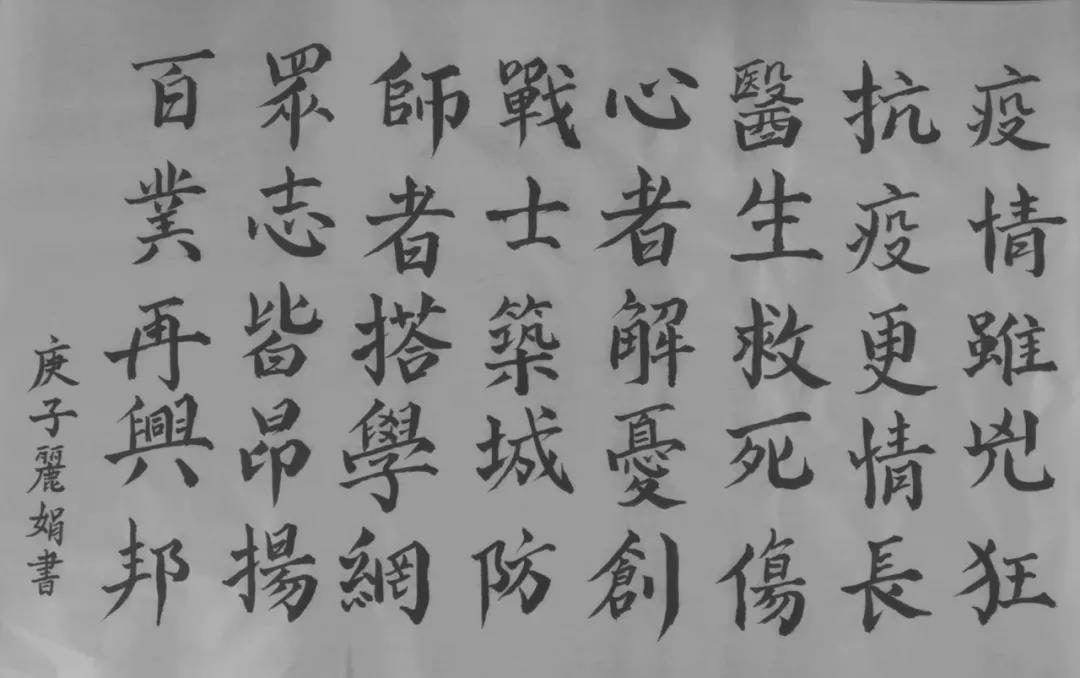 疫情雖兇狂
抗疫更情長
醫生救死傷
心者解憂創
戰士築城防
師者搭學網
眾志皆昂揚
百業再興邦
庚子麗娟書